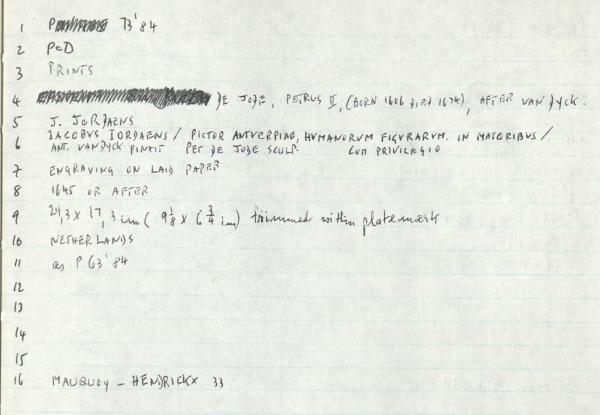 1 P 73'84
2 PCD
3 PRINTS
4 DE JODE, PETRUS II, (BORN 1606 DIED 1674), AFTER VAN DYCK.
5 J. JORDAENS
6 IACOBVS IORDAENS / PICTOR ANTVERPIAE, HVMANORVM FIGVRARVM. IN MAIORIBVS /
ANT. VANDYCK PINXIT PET DE JODE SCULP. CUM PRIVILEGIO
7 ENGRAVING ON LAID PAPER
8 1645 OR AFTER
9 24,3 x 17,3 cm ( 9 1/8 x 6 3/4 in) trimmed within platemark
10 NETHERLANDS
11 as P 63'84
12
13
14
15
16 MAUQUOY - HENDRICKX 33